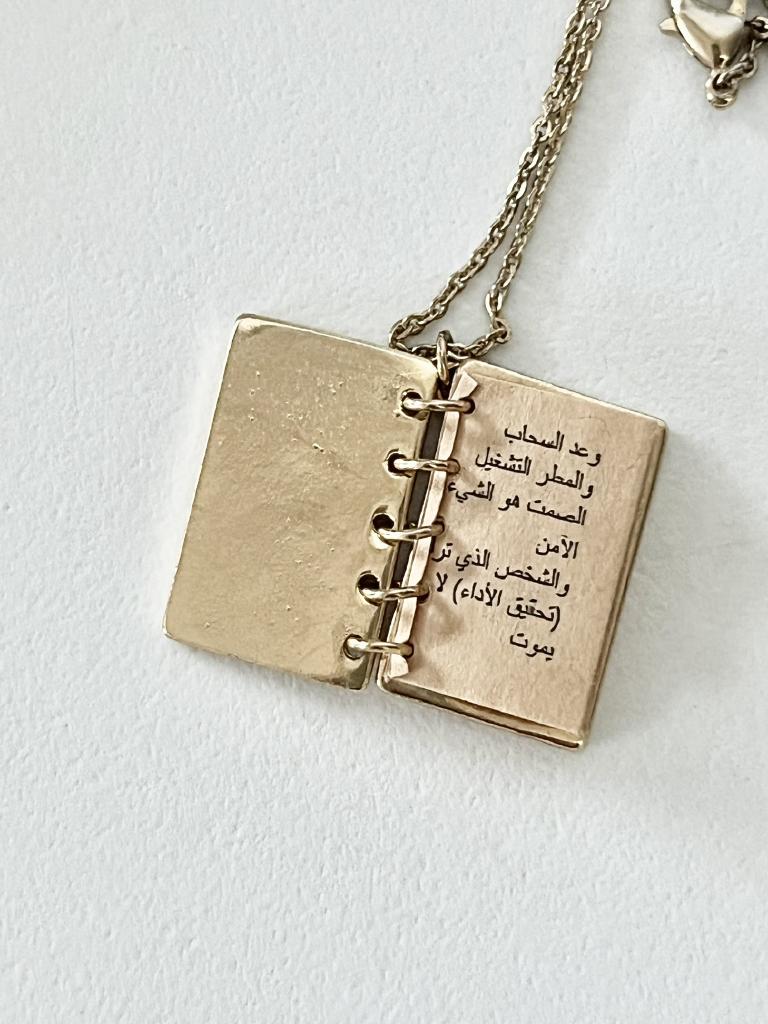 وعد السحاب
والمطر التشغيل
الصمت هو الشيء
الآمن
والشخص الذي ترا
(تحقيق الأداء) لا
يموت